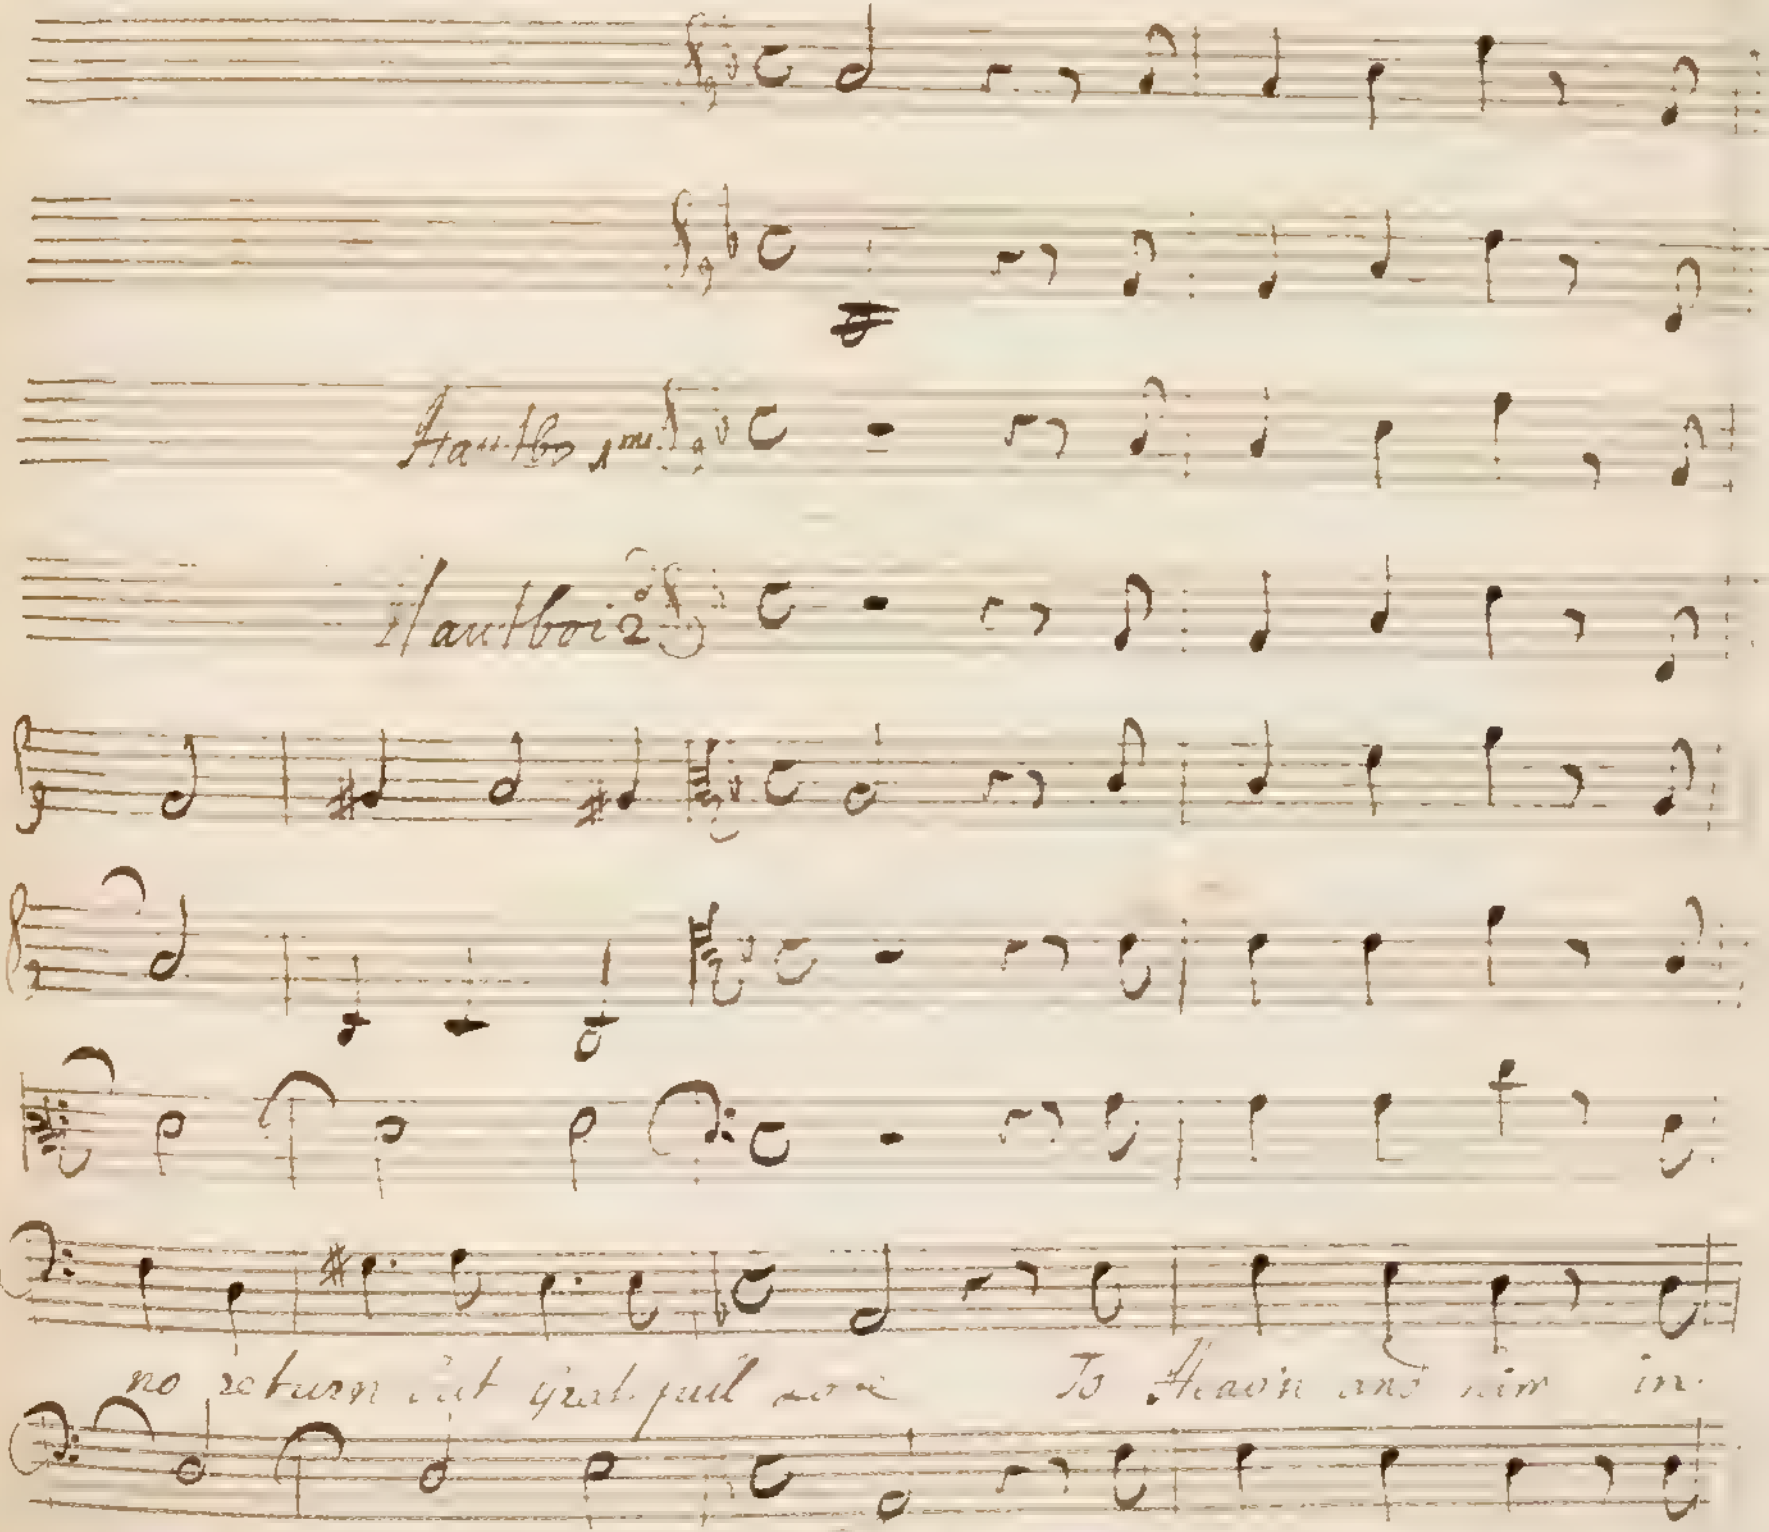 Hautbo 1mo.
Hautboi 2
no return but grateful love To Heav'n and him in